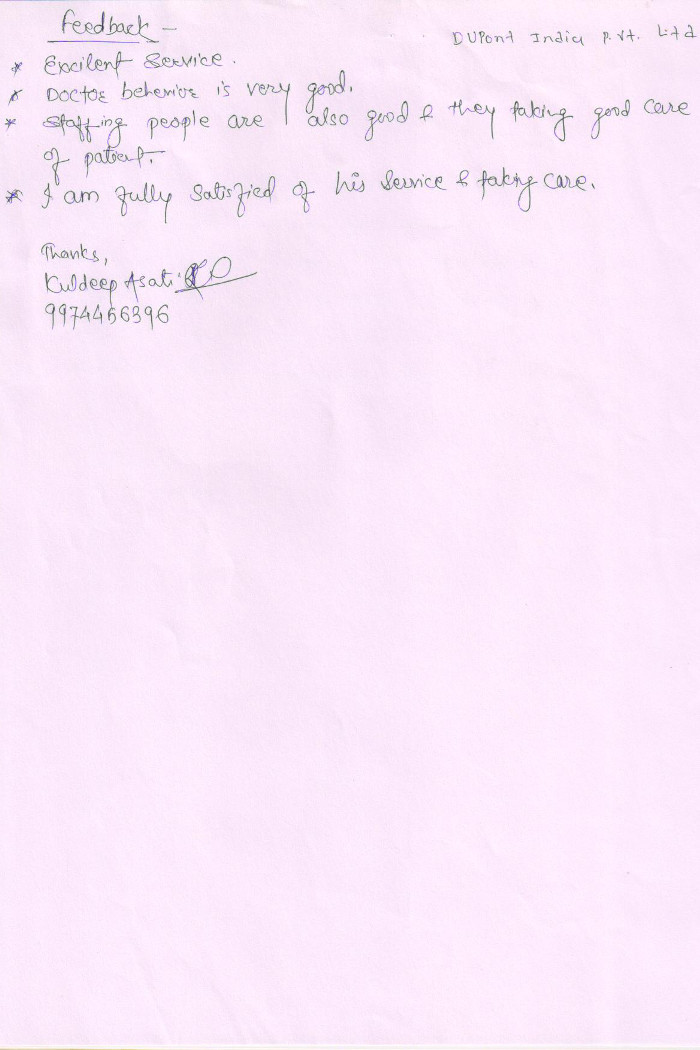 Feedback -
DUPont India P. Vt. Ltd
* Excilent Service.
* Doctor behevior is very good.
* Staffing people are also good & they taking good care
of patient.
* I am fully satisfied of his service & taking care.
Thanks,
Kuldeep Asati
9974456396